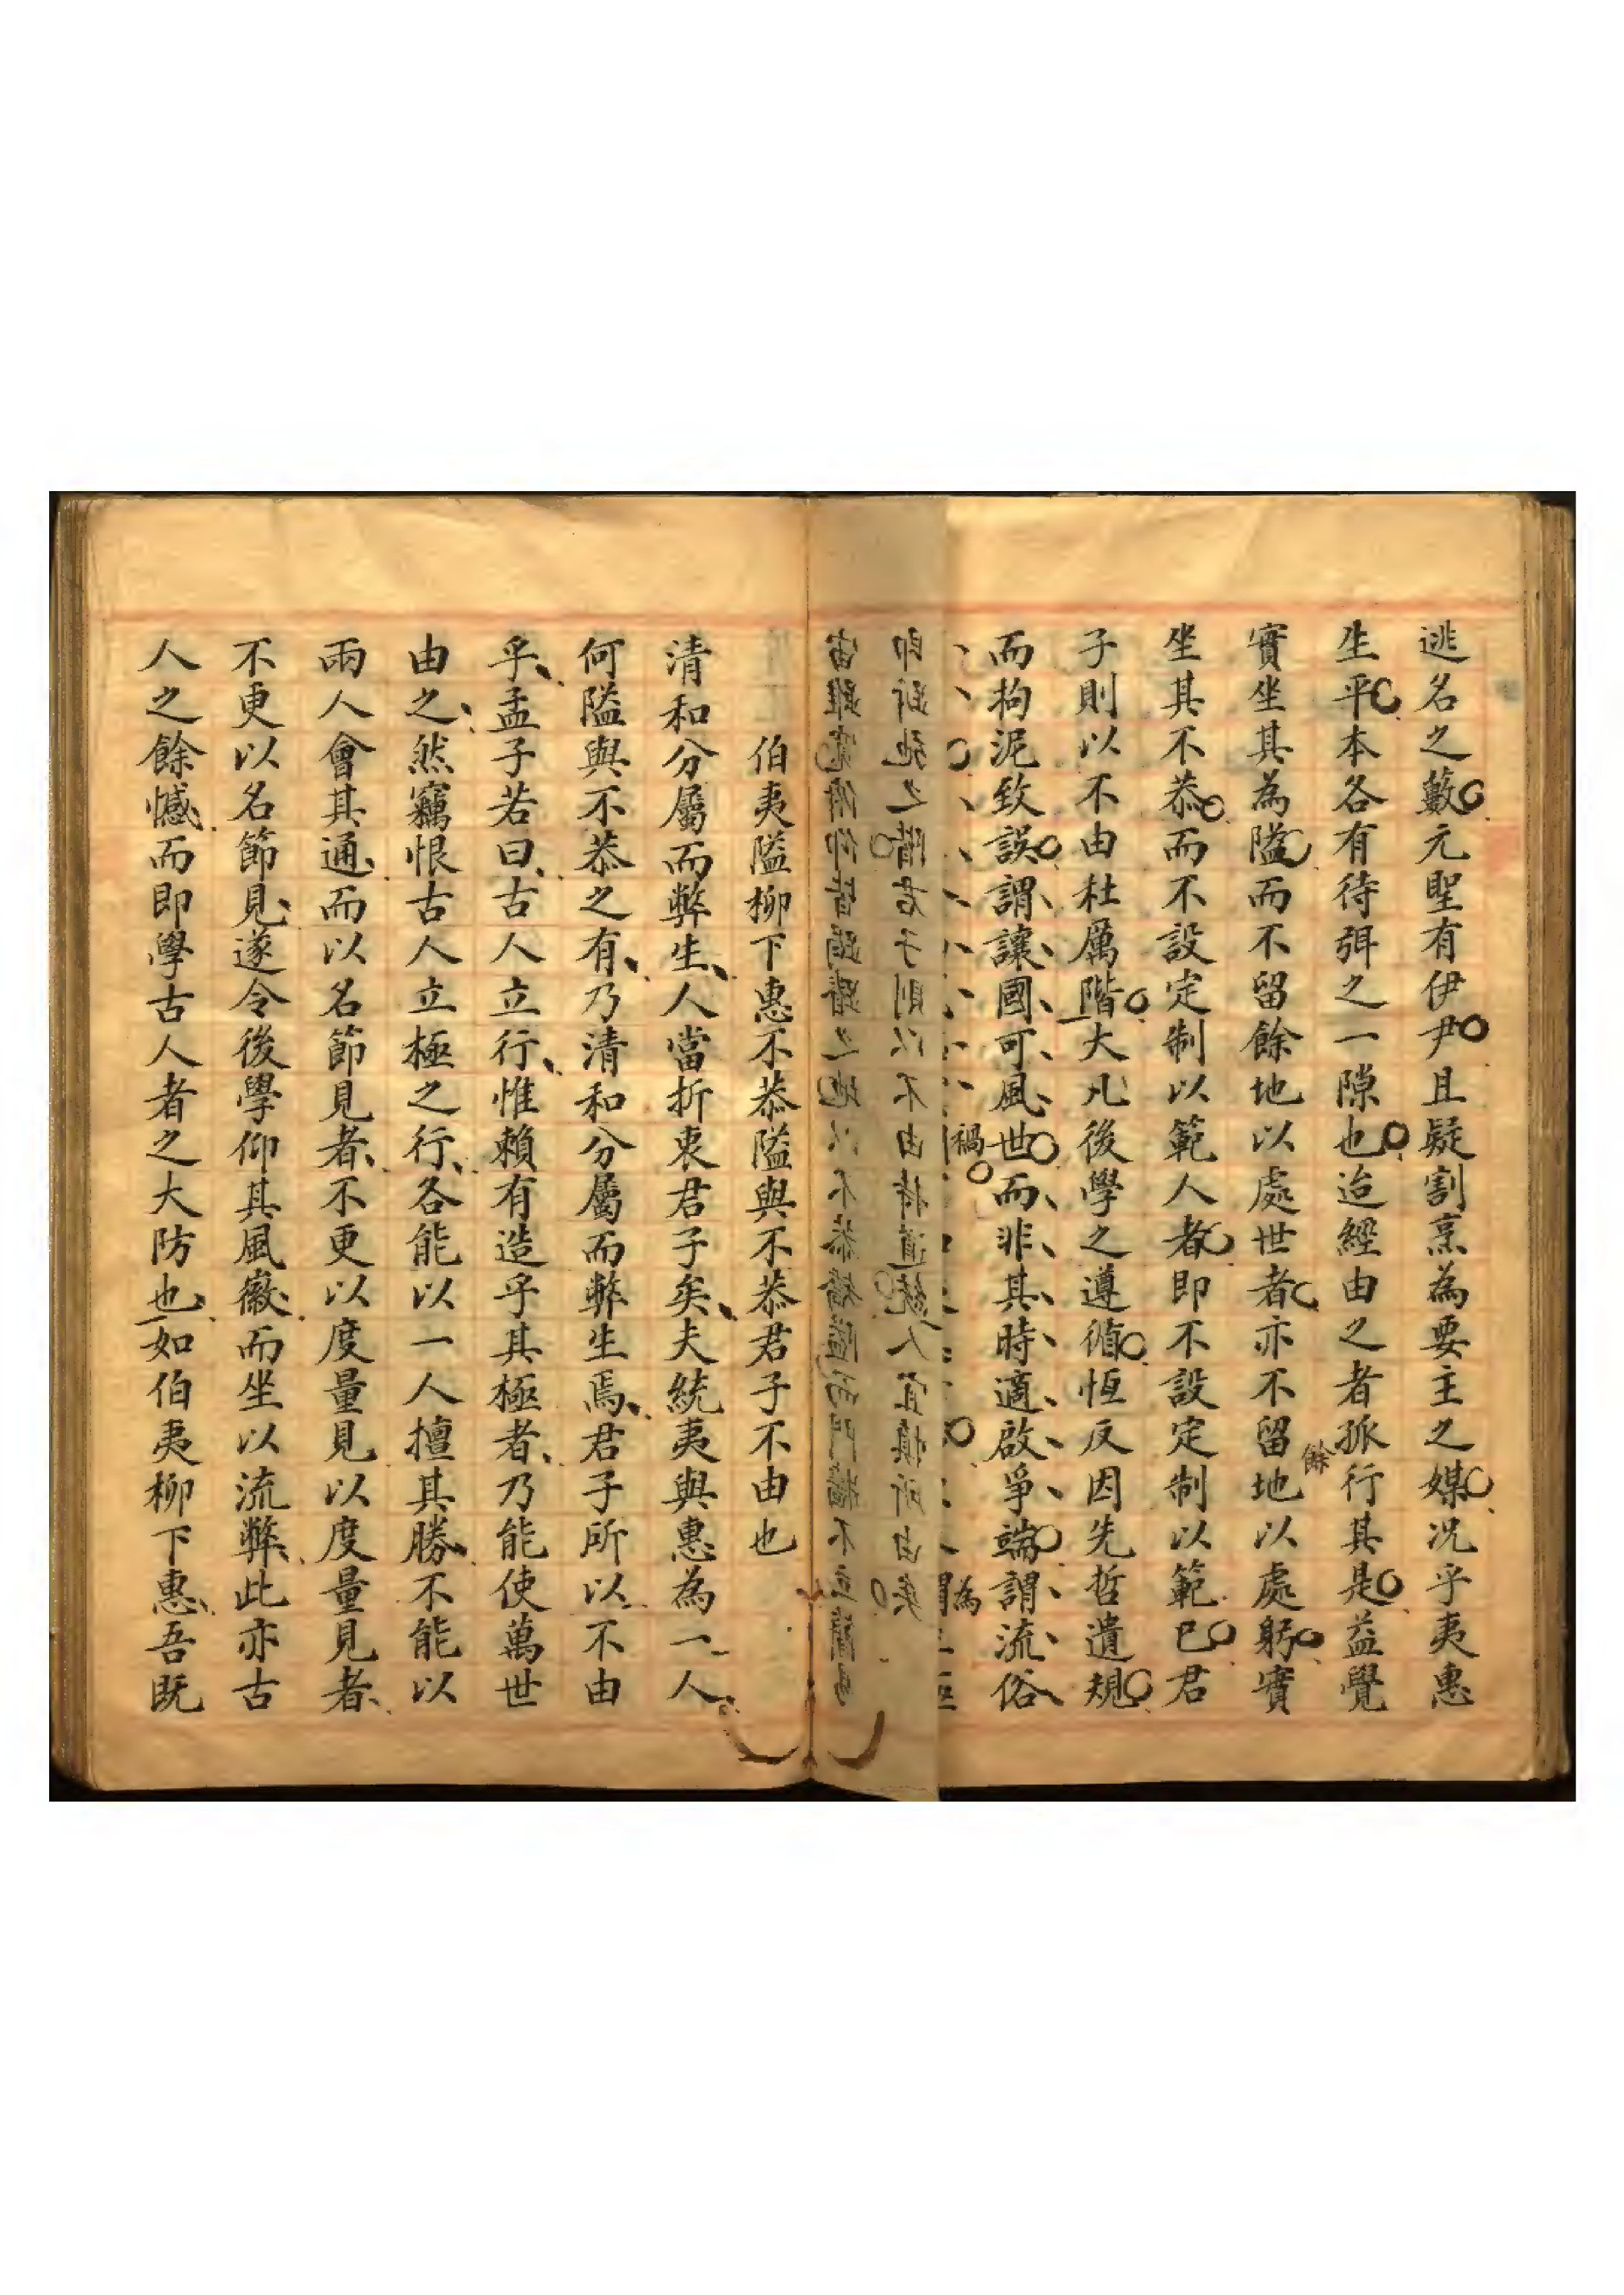 逃名之藪元聖有伊尹且疑割烹為要主之媒况乎夷惠
生平本各有待弭之一隙也迨經由之者孤行其是益覺
實坐其為隘而不留餘地以處世者亦不留餘地以處躬實
坐其不恭而不設定制以範人者即不設定制以範己君
子則以不由杜厲階大凡後學之遵循恆反因先哲遺規
而拘泥致誤謂讓國可風世而非其時適啟爭端謂流俗
禍
為
伯夷隘柳下惠不恭隘與不恭君子不由也
清和分屬而弊生人當折衷君子矣夫統夷與惠為一人
何隘與不恭之有乃清和分屬而弊生焉君子所以不由
乎孟子若曰古人立行惟賴有造乎其極者乃能使萬世
由之然竊恨古人立極之行各能以一人擅其勝不能以
兩人會其通而以名節見者不更以度量見以度量見者
不更以名節見遂令後學仰其風徽而坐以流弊此亦古
人之餘憾而即學古人者之大防也如伯夷柳下惠吾既